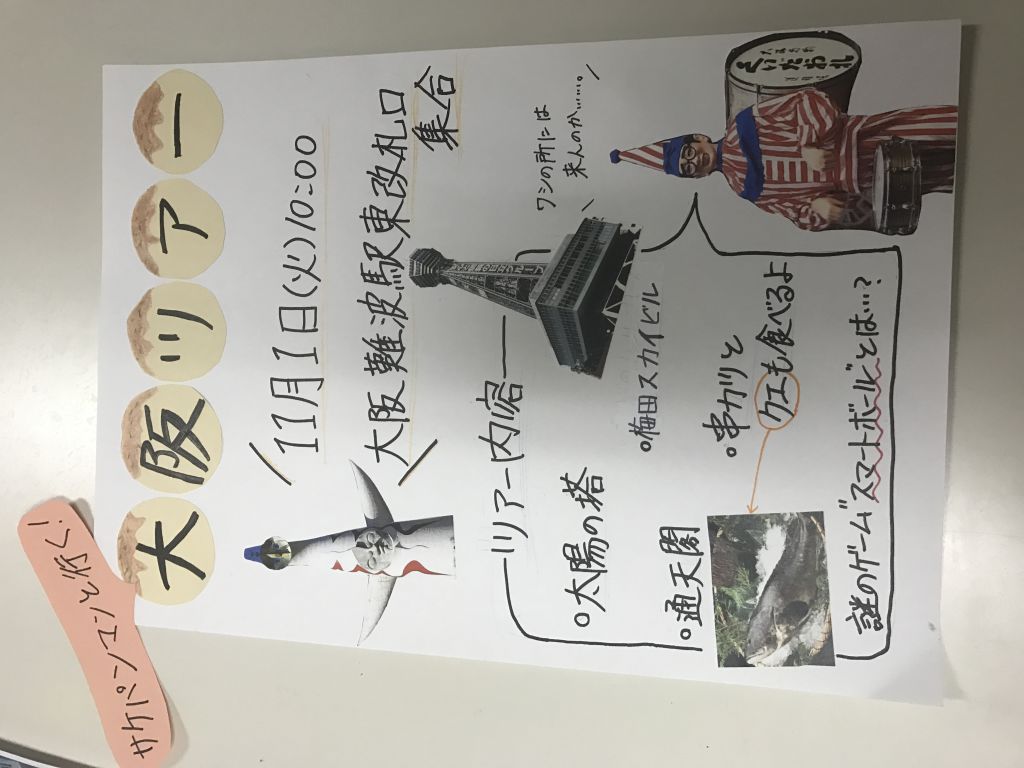 サケパンマンと行く!
大阪ツアー
11月1日(火)10:00
大阪難波駅東改札口
集合
ツアー内容
太陽の塔
梅田スカイビル
通天閣
串カツと
クエも食べるよ
謎のゲーム"スマートボール"とは…?
ワシの所には
来んのか……。
くいだおれ